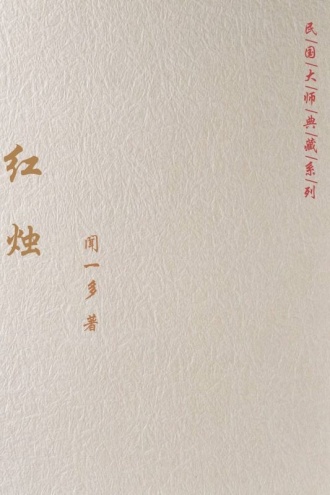 民|国|大|师|典|藏|系|列
红烛
闻一多 著